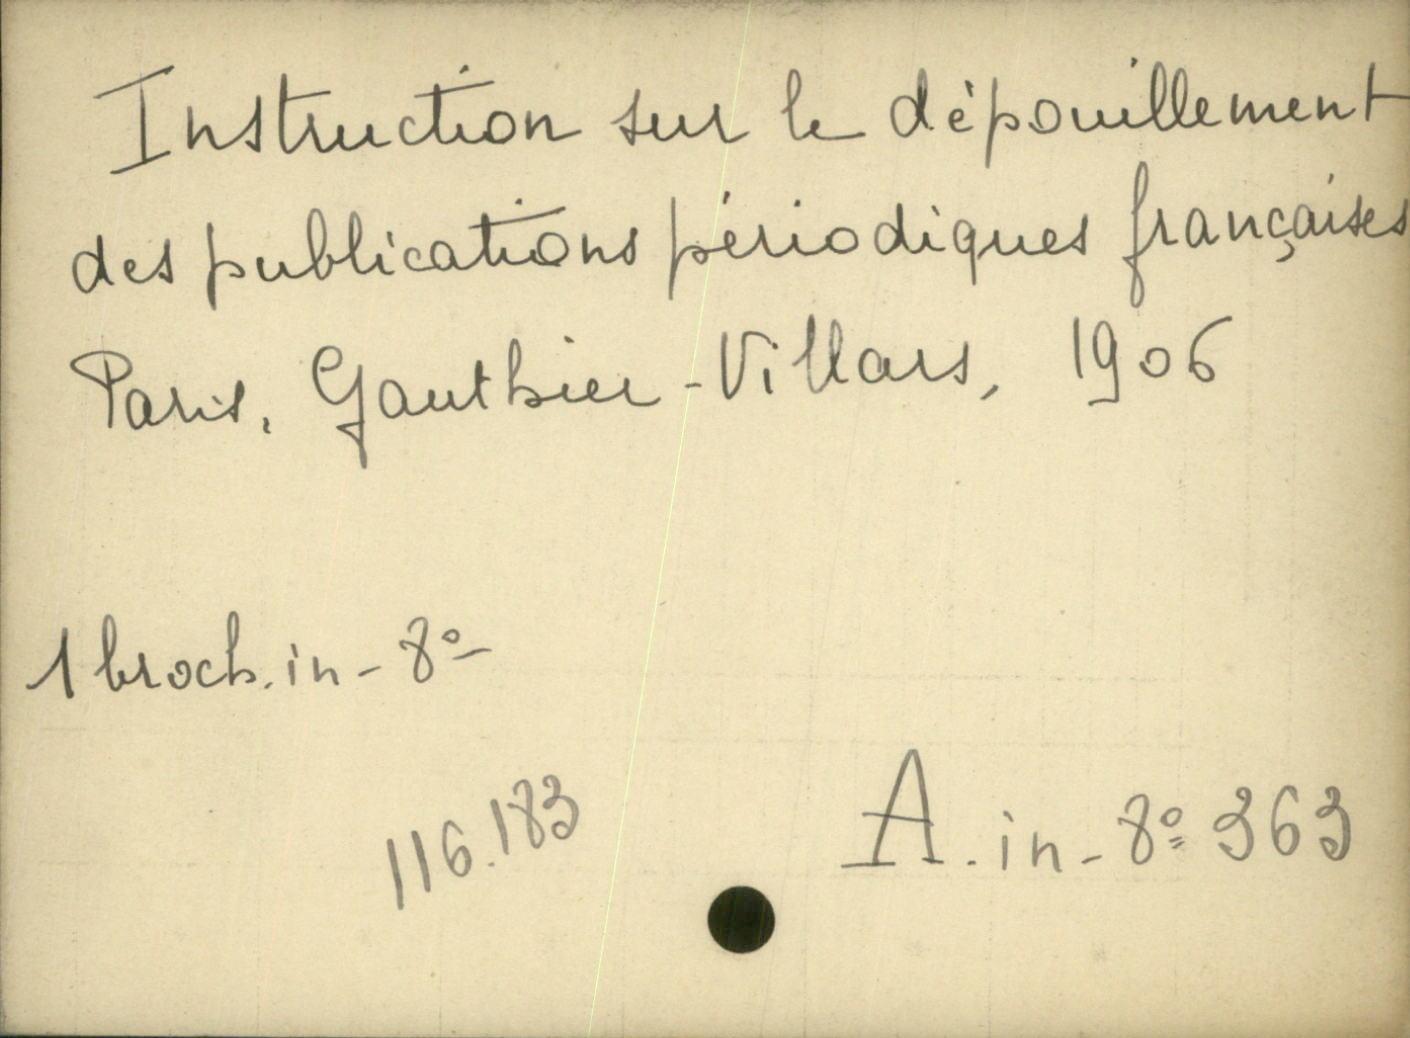 Instruction sur le dépouillement
des publications périodiques françaises
Paris, Gauthier-Villars, 1906
1 broch. in-8º
116.183
A. in-8º 363